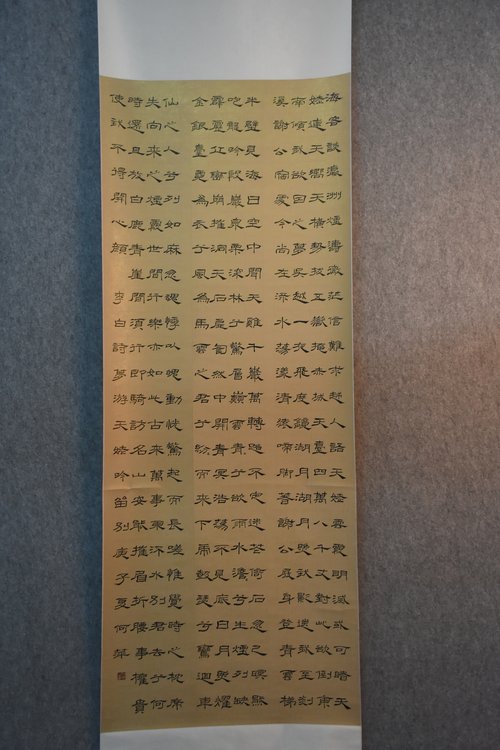 海客談瀛洲煙濤微茫信難求越人語天姥雲霓明滅或可睹天
姥連天向天橫勢拔五嶽掩赤城天臺四萬八千丈對此欲倒東
南傾我欲因之夢吳越一夜飛度鏡湖月湖月照我影送我至剡
溪謝公宿處今尚在淥水蕩漾清猿啼腳著謝公屐身登青雲梯
半壁見海日空中聞天雞千巖萬轉路不定迷花倚石忽已暝熊
咆龍吟殷巖泉慄深林兮驚層巔雲青兮欲雨水澹兮生煙列缺
霹靂丘巒崩摧洞天石扉訇然中開青冥浩蕩不見底日月照耀
金銀臺霓為衣兮風為馬雲之君兮紛而來下虎鼓瑟兮鸞迴車
仙之人兮列如麻忽魂悸以魄動怳驚起而長嗟惟覺時之枕席
失向來之煙霞世間行樂亦如此古來萬事東流水別君去兮何
時還且放白鹿青崖間須行即騎訪名山安能摧眉折腰事權貴
使我不得開心顏 李白詩夢游天姥吟留別庚子夏何萍